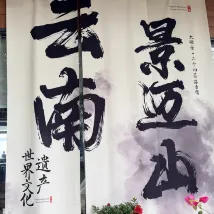 云南
景迈山
世界文化
遗产